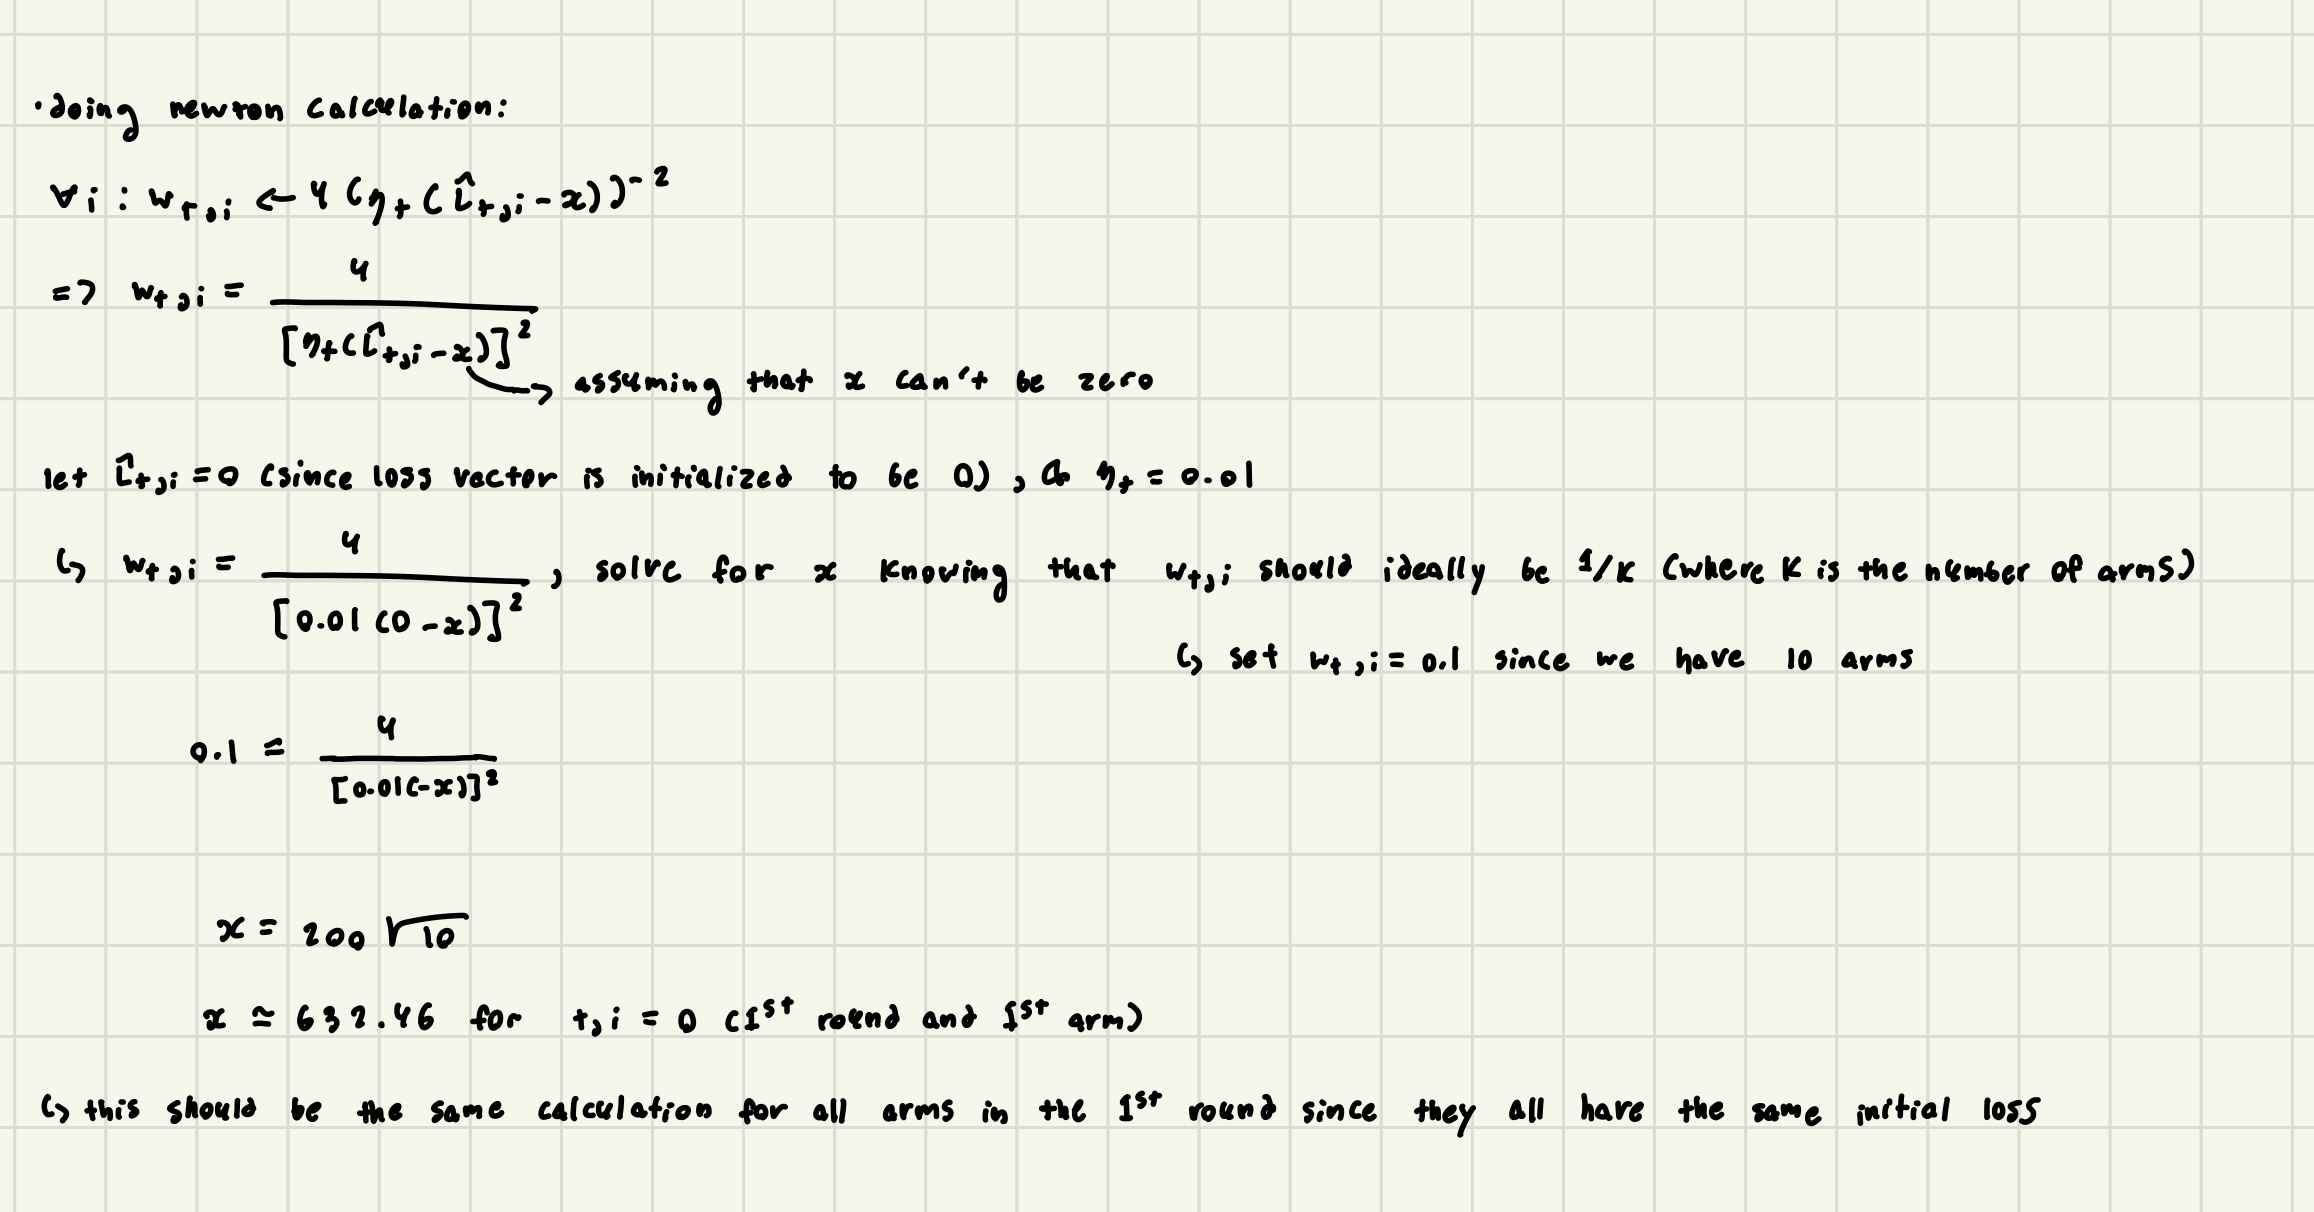 · doing newton calculation:
∀i : w_{t,i} ← 4 (η_t (L̂_{t,i} - x))^{-2}
=> w_{t,i} = 4 / [η_t (L̂_{t,i} - x)]^2
→ assuming that x can't be zero
let L̂_{t,i} = 0 (since loss vector is initialized to be 0), & η_t = 0.01
↳ w_{t,i} = 4 / [0.01 (0 - x)]^2 , solve for x knowing that w_{t,i} should ideally be 1/K (where K is the number of arms)
↳ set w_{t,i} = 0.1 since we have 10 arms
0.1 = 4 / [0.01(-x)]^2
x = 200 √10
x ≃ 632.46 for t,i = 0 (1st round and 1st arm)
↳ this should be the same calculation for all arms in the 1st round since they all have the same initial loss